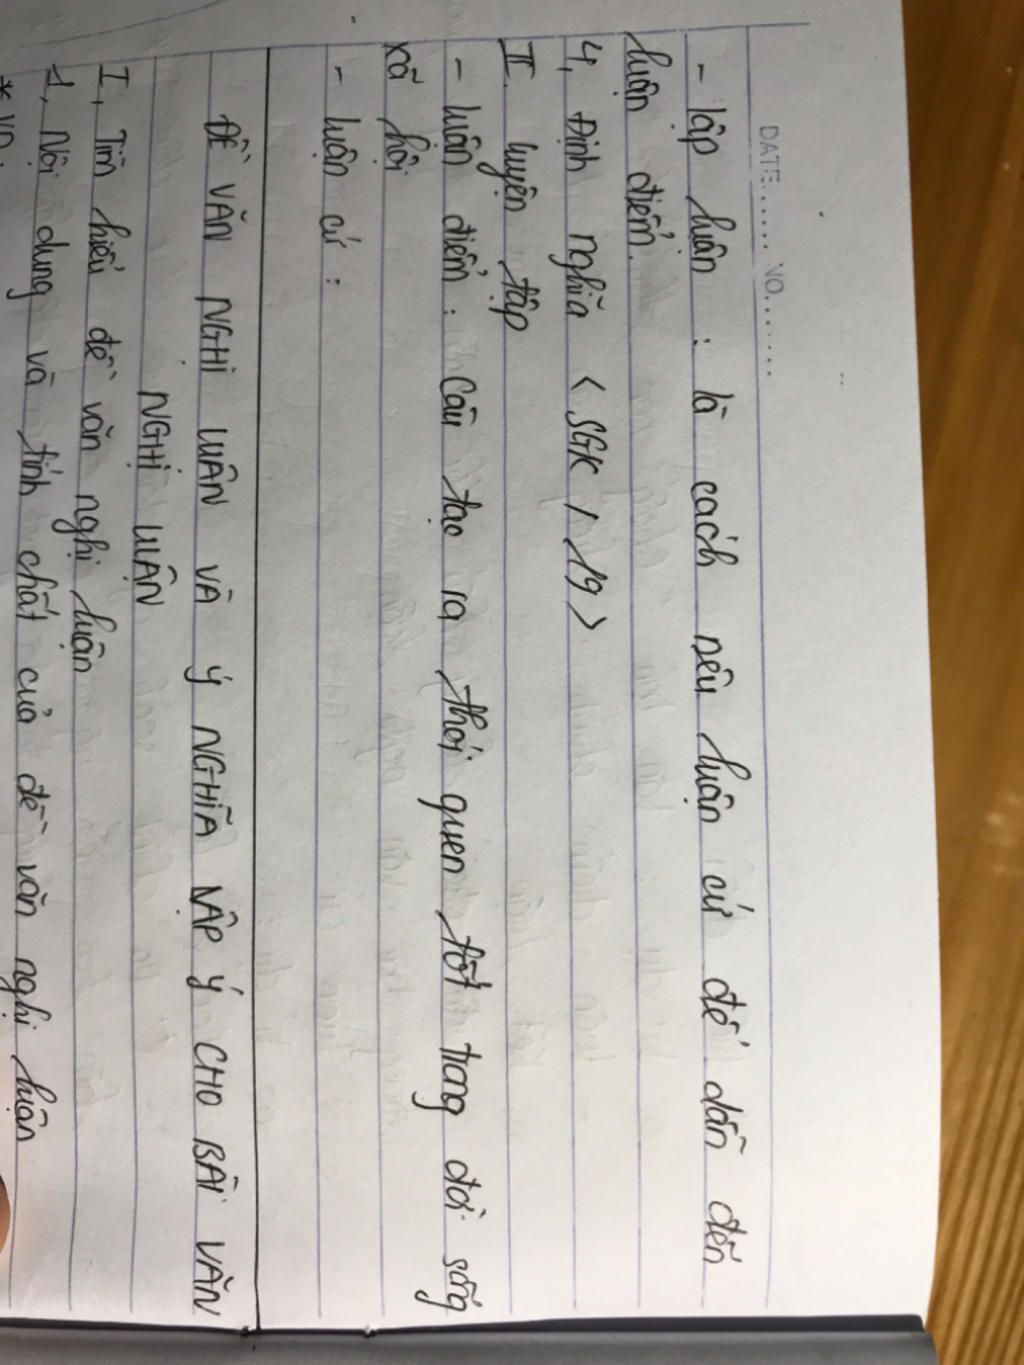 DATE...... NO.......
- lập luận : là cách nêu luận cứ để dẫn đến
luận điểm.
4, Định nghĩa < SGK / 19 >
II. luyện tập
- luận điểm : Cần tạo ra thói quen tốt trong đời sống
xã hội
- luận cứ :
ĐỀ VĂN NGHỊ LUẬN VÀ Ý NGHĨA LẬP Ý CHO BÀI VĂN
NGHỊ LUẬN
I, Tìm hiểu đề văn nghị luận
1, Nội dung và tính chất của đề văn nghị luận
* VD: